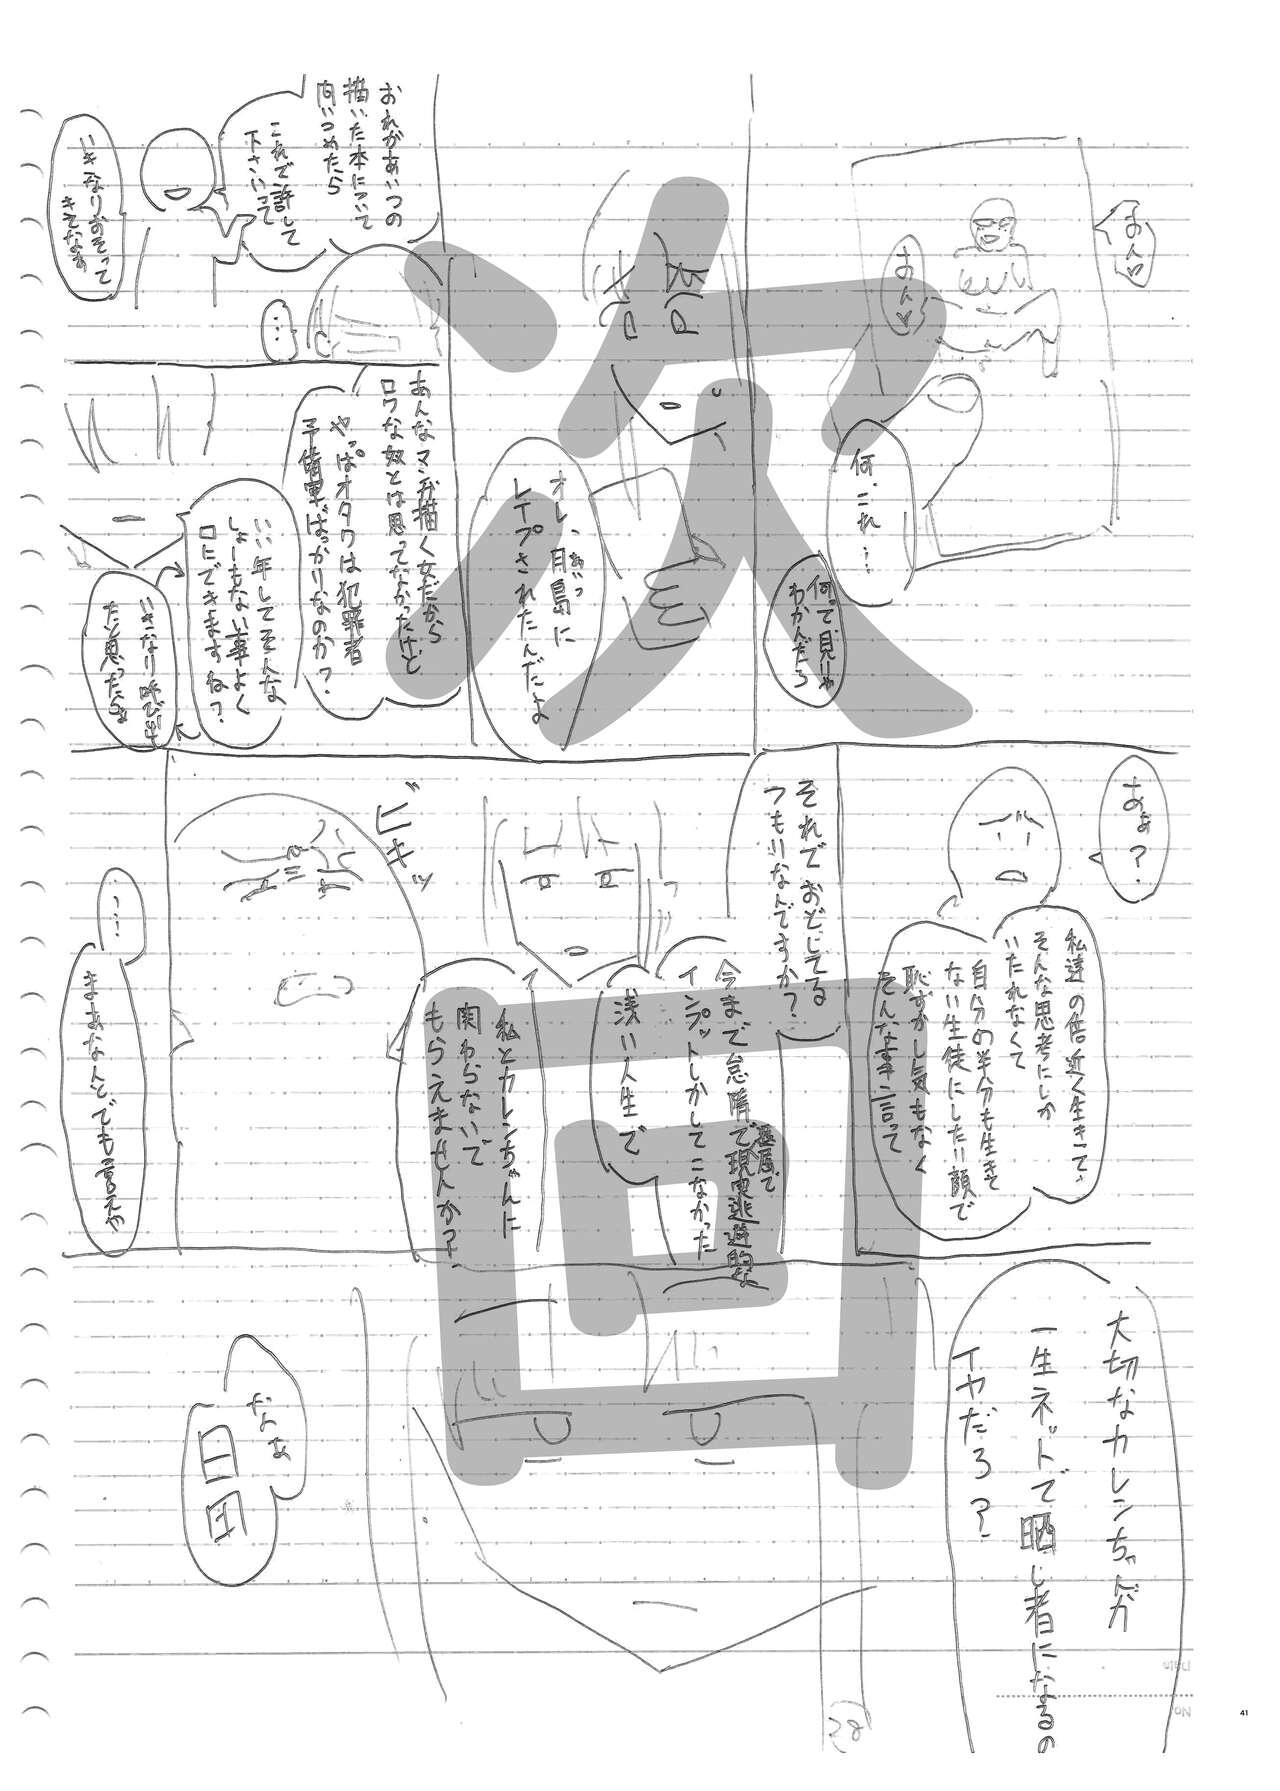 何、これ…
何って見りゃ
わかんだろ
オレ、月島に
レイプされたんだよ
おれがあいつの
描いた本について
問いつめたら
これで許して
下さいって
いきなりおそって
きてなぁ
…
あんなマンガ描く女だから
ロクな奴とは思ってなかったけど
やっぱオタクは犯罪者
予備軍ばっかりなのか?
いい年してそんな
しょーもない事よく
口にできますね?
いきなり呼び出し
たと思ったら
あぁ?
私達の倍近く生きてて、
そんな思考にしか
いたれなくて
自分の半分も生きて
ない生徒にしたり顔で
恥ずかし気もなく
そんな事言って
それでおどしてる
つもりなんですか?
今まで怠惰で現実逃避的な
インプットしかしてこなかった
浅い人生で
私とカレンちゃんに
関わらないで
もらえませんか?
ビキッ
…
まぁなんとでも言えや
大切なカレンちゃんが
一生ネットで晒し者になるの
イヤだろ?
なぁ
日田
38
次回
Date
No.
41